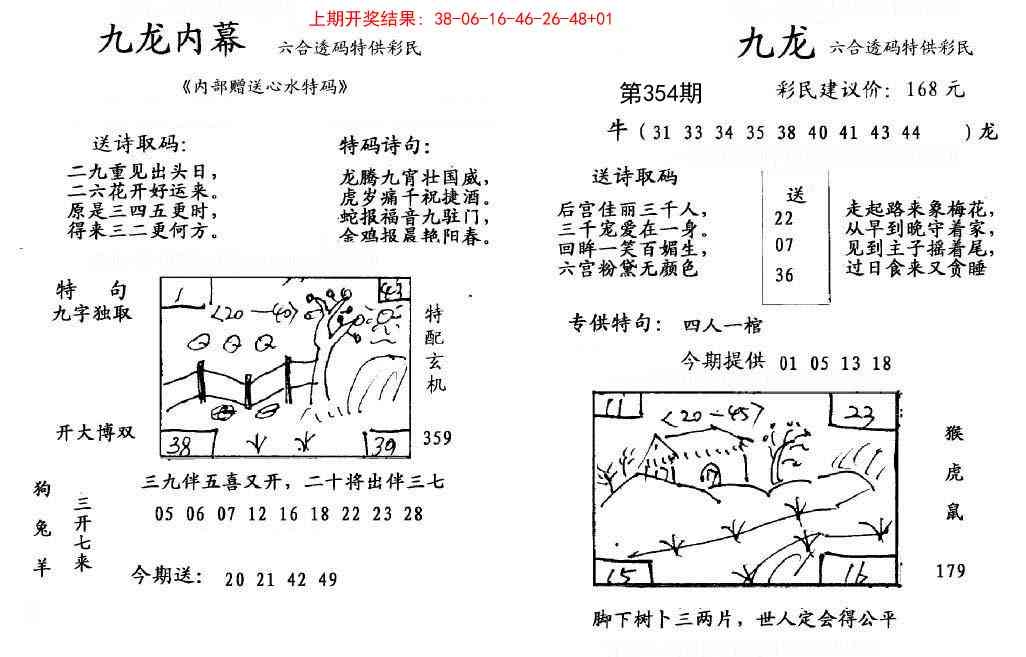 上期开奖结果：38-06-16-46-26-48+01
九龙内幕 六合透码特供彩民
《内部赠送心水特码》
送诗取码：
二九重见出头日，
二六花开好运来。
原是三四五更时，
得来三二更何方。
特码诗句：
龙腾九宵壮国威，
虎岁痛千祝捷酒。
蛇报福音九驻门，
金鸡报晨艳阳春。
特 句
九字独取
开大博双
1
43
<20—40>
38
39
特配玄机
359
三九伴五喜又开，二十将出伴三七
狗兔羊
三开七来
05 06 07 12 16 18 22 23 28
今期送： 20 21 42 49
九龙 六合透码特供彩民
第354期 彩民建议价：168元
牛（31 33 34 35 38 40 41 43 44 ）龙
送诗取码
后宫佳丽三千人，
三千宠爱在一身。
回眸一笑百媚生，
六宫粉黛无颜色
送
22
07
36
走起路来象梅花，
从早到晚守着家，
见到主子摇着尾，
过日食来又贪睡
专供特句： 四人一棺
今期提供 01 05 13 18
11
23
<20—45>
15
16
猴
虎
鼠
179
脚下树卜三两片，世人定会得公平